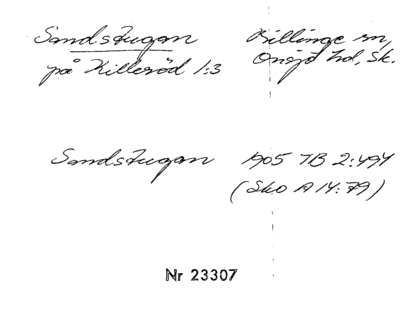 Sandstugan Billinge sn,
på Killeröd 1:3 Onsjö hd, Sk.
Sandstugan 1905 TB 2:494
(Sko A 14:79)
Nr 23307